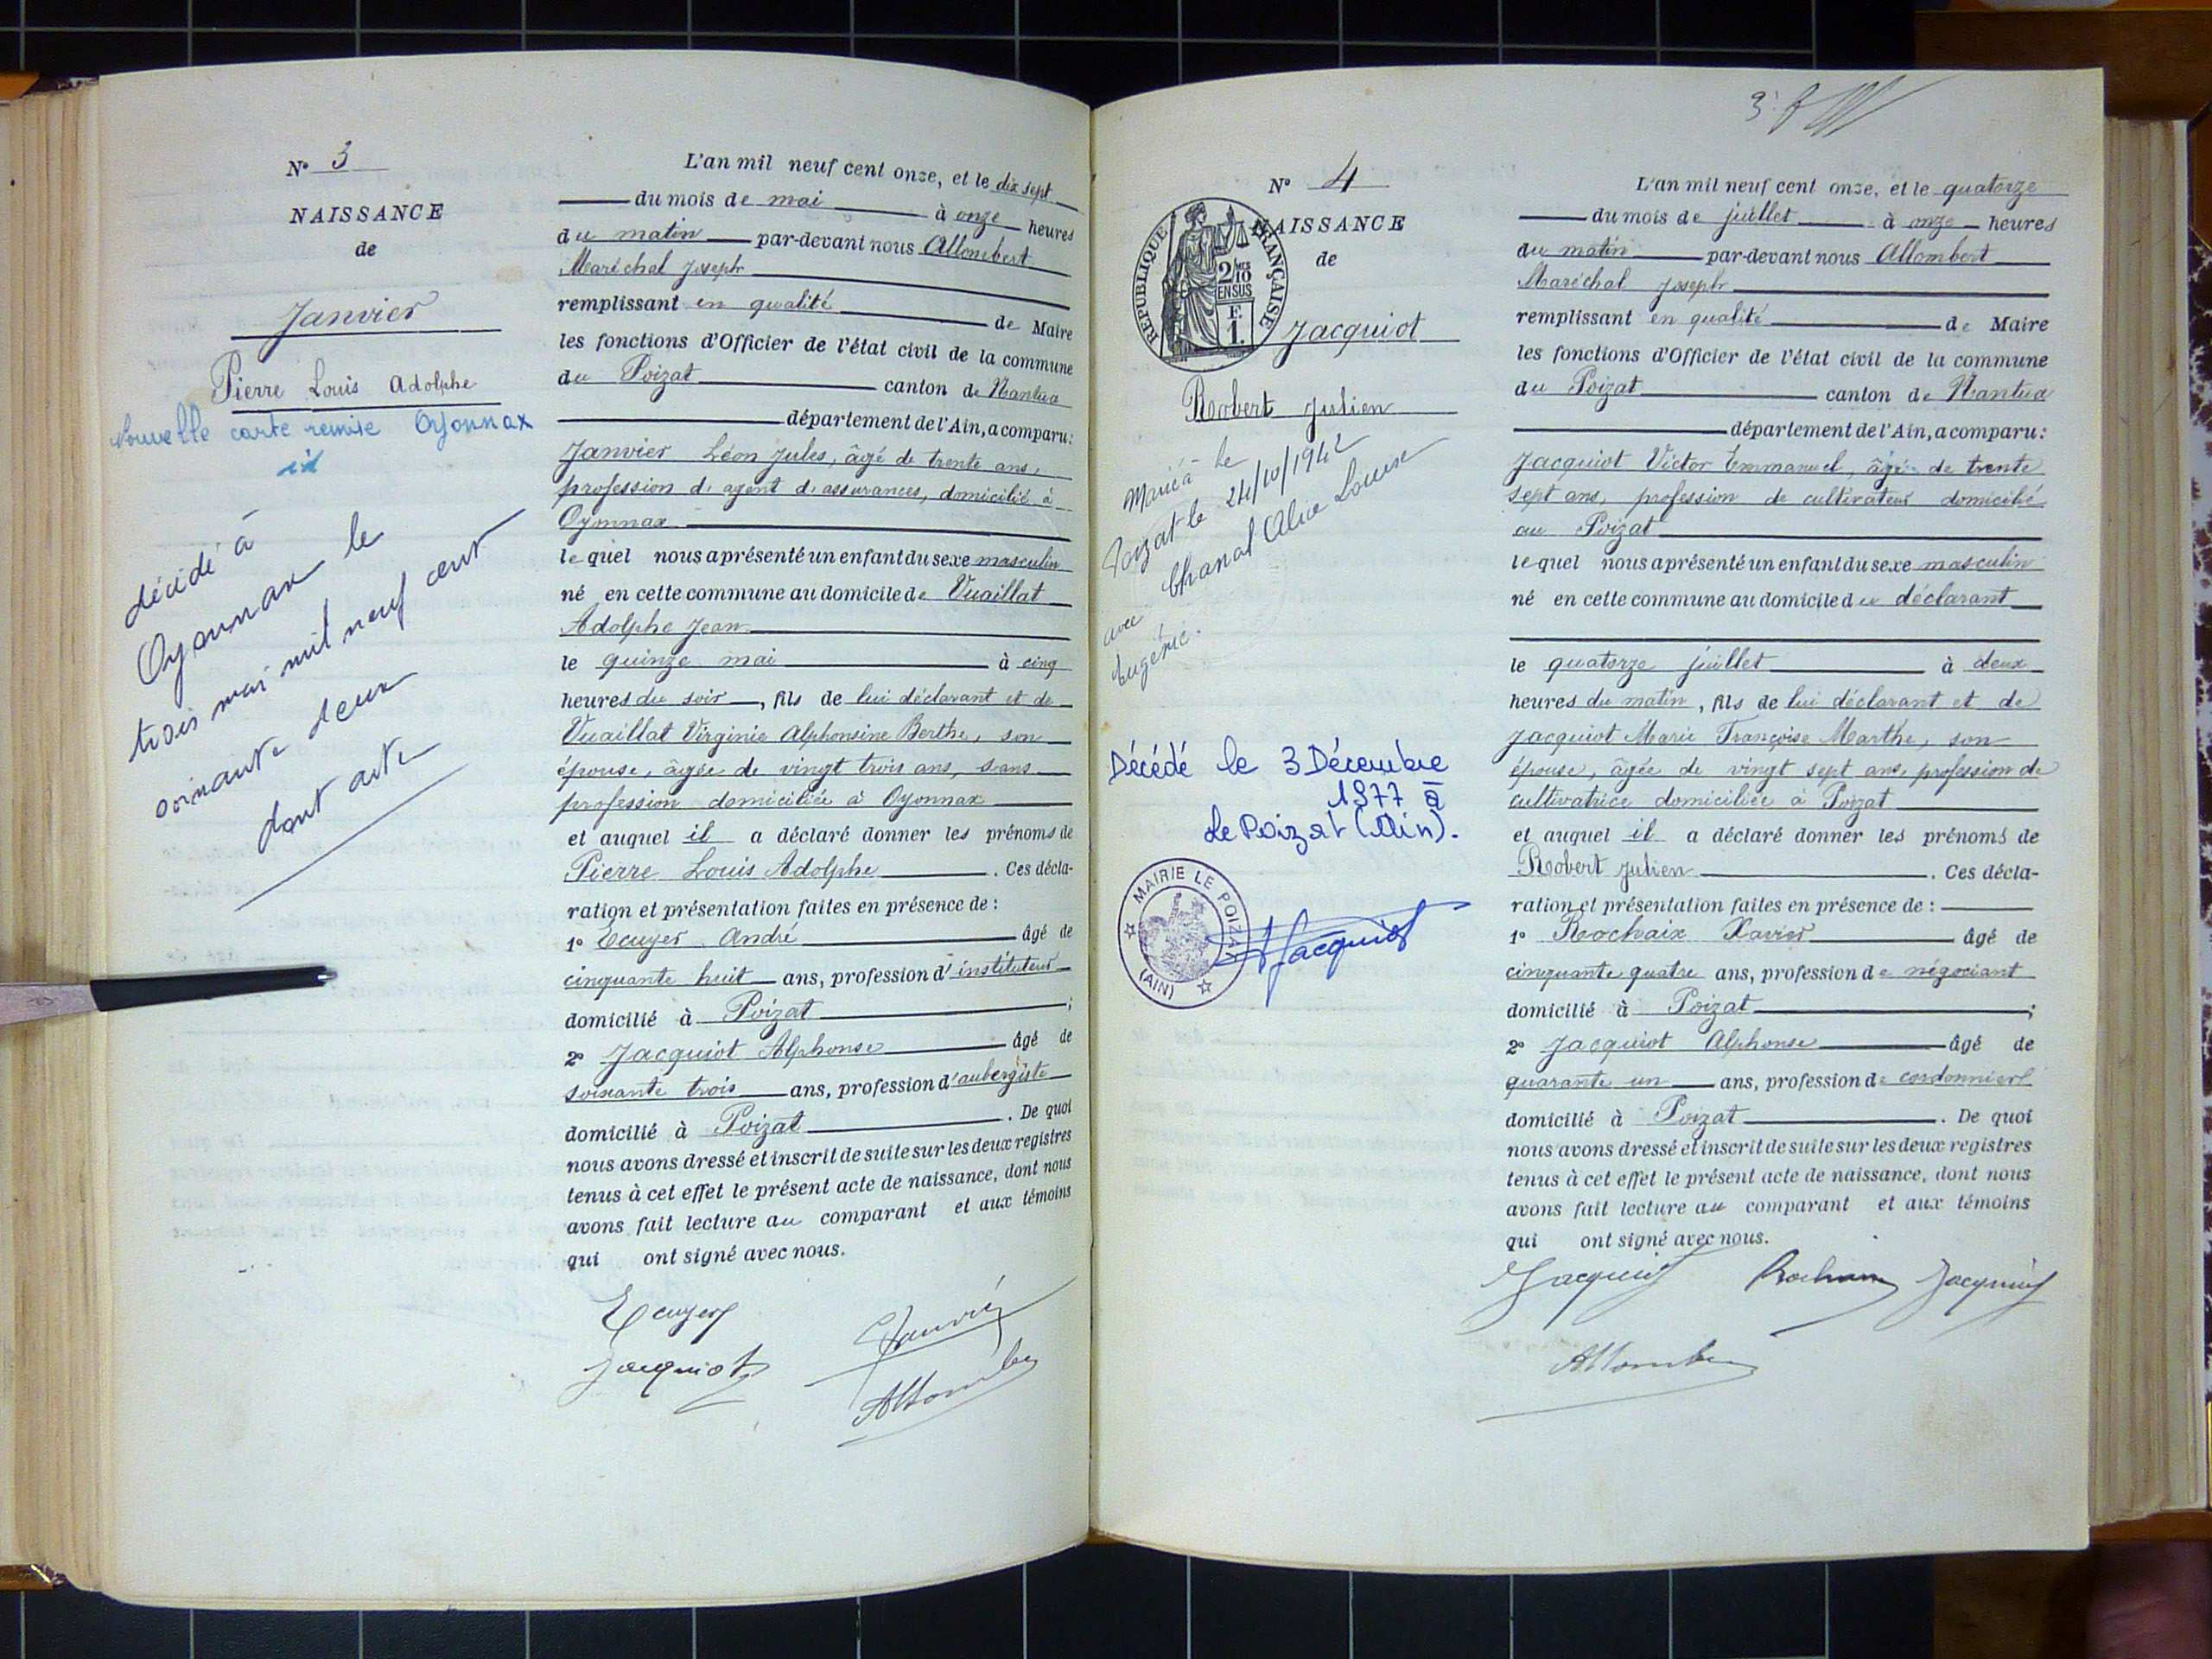 N° 3
NAISSANCE
de
Janvier
Pierre Louis Adolphe
Nouvelle carte remise Oyonnax
décédé à
Oyonnax le
trois mai mil neuf cent
soixante deux
dont acte
L'an mil neuf cent onze, et le dix sept
du mois de mai à onze heures
du matin par-devant nous Allombert
Maréchal Joseph
remplissant en qualité de Maire
les fonctions d'Officier de l'état civil de la commune
du Poizat canton de Nantua
département de l'Ain, a comparu:
Janvier Léon Jules, âgé de trente ans,
profession d'agent d'assurances, domicilié à
Oyonnax
lequel nous a présenté un enfant du sexe masculin
né en cette commune au domicile de Vuaillat
Adolphe Jean
le quinze mai à cinq
heures du soir, fils de lui déclarant et de
Vuaillat Virginie Alphonsine Berthe, son
épouse, âgée de vingt trois ans, sans
profession domiciliée à Oyonnax
et auquel il a déclaré donner les prénoms de
Pierre Louis Adolphe. Ces décla-
ration et présentation faites en présence de :
1° Ecuyer André âgé de
cinquante huit ans, profession d'instituteur
domicilié à Poizat ;
2° Jacquiot Alphonse âgé de
soixante trois ans, profession d'aubergiste
domicilié à Poizat. De quoi
nous avons dressé et inscrit de suite sur les deux registres
tenus à cet effet le présent acte de naissance, dont nous
avons fait lecture au comparant et aux témoins
qui ont signé avec nous.
Ecuyer Janvier
Jacquiot Allombert
N° 4
NAISSANCE
de
REPUBLIQUE FRANÇAISE
2/10
EN SUS
F.
1.
Jacquiot
Robert Julien
Marié à Le
Poizat le 24/10/1942
avec Chanal Alice Louise
Eugénie.
Décédé le 3 Décembre
1977 à
Le Poizat (Ain).
MAIRIE LE POIZAT
(AIN)
Jacquiot
L'an mil neuf cent onze, et le quatorze
du mois de juillet à onze heures
du matin par-devant nous Allombert
Maréchal Joseph
remplissant en qualité de Maire
les fonctions d'Officier de l'état civil de la commune
du Poizat canton de Nantua
département de l'Ain, a comparu:
Jacquiot Victor Emmanuel, âgé de trente
sept ans, profession de cultivateur domicilié
au Poizat
lequel nous a présenté un enfant du sexe masculin
né en cette commune au domicile du déclarant
le quatorze juillet à deux
heures du matin, fils de lui déclarant et de
Jacquiot Marie Françoise Marthe, son
épouse, âgée de vingt sept ans, profession de
cultivatrice domiciliée à Poizat
et auquel il a déclaré donner les prénoms de
Robert Julien. Ces décla-
ration et présentation faites en présence de :
1° Rochaix Xavier âgé de
cinquante quatre ans, profession de négociant
domicilié à Poizat ;
2° Jacquiot Alphonse âgé de
quarante un ans, profession de cordonnier
domicilié à Poizat. De quoi
nous avons dressé et inscrit de suite sur les deux registres
tenus à cet effet le présent acte de naissance, dont nous
avons fait lecture au comparant et aux témoins
qui ont signé avec nous.
Jacquiot Rochaix Jacquiot
Allombert